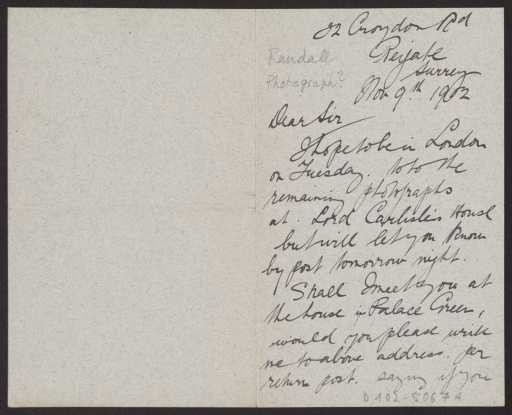 22 Croydon Rd
Reigate
Surrey
Randall
Photograph?
Nov 9th 1902
Dear Sir
I hope to be in London
on Tuesday. to to the
remaining photographs
at. Lord Carlisle's House
but will let you know
by post tomorrow night.
Shall I meet you at
the house in Palace Green,
would you please write
me to above address. per
return post. saying if you
D102-5067A